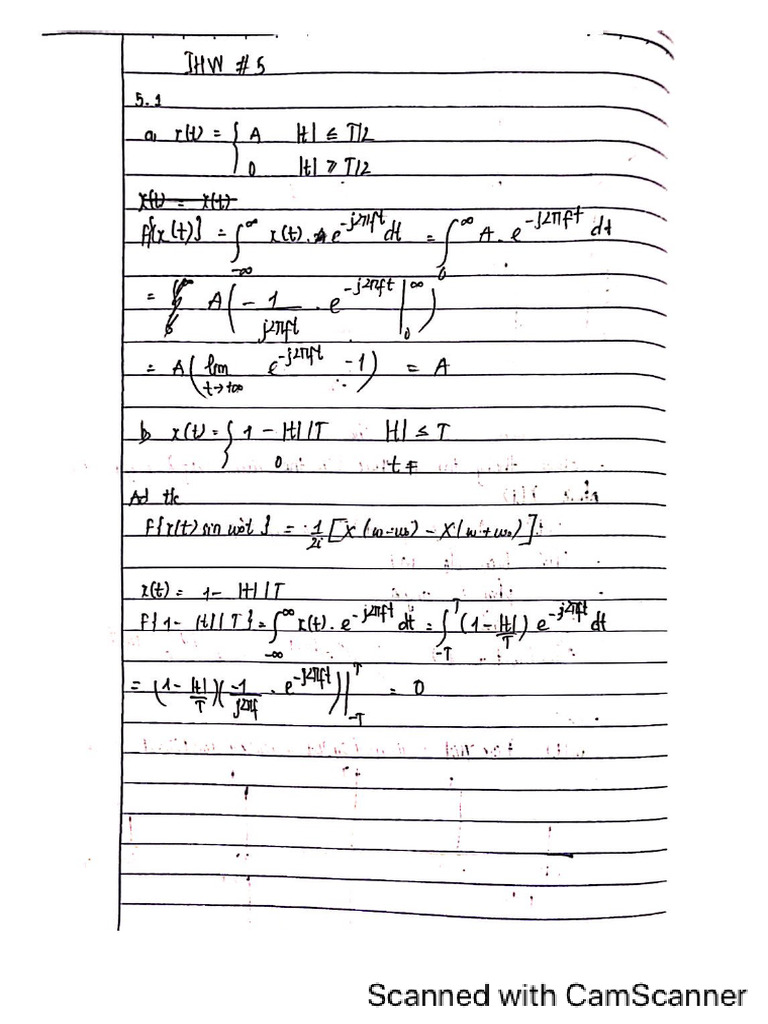 IHW # 5
5.1
a, x(t) = { A |t| ≤ T/2
0 |t| ≥ T/2
x(t) = x(t)
F{x(t)} = ∫_{-∞}^{∞} x(t). e^{-j2πft} dt = ∫_0^∞ A. e^{-j2πft} dt
= A( -1/(j2πft) . e^{-j2πft} |_0^∞ )
= A( lim_{t→+∞} e^{-j2πft} -1 ) = A
b, x(t) = { 1 - |t|/T |t| ≤ T
0 t
Ad tk
F{x(t) sin ω0t } = 1/2i [X (ω-ω0) - X(ω+ω0)]
x(t) = 1- |t|/T
F{1- |t|/T} = ∫_{-∞}^{∞} x(t). e^{-j2πft} dt = ∫_{-T}^{T} (1-|t|/T) e^{-j2πft} dt
= (1-|t|/T)(-1/(j2πf) . e^{-j2πft})|_{-T}^{T} = 0
Scanned with CamScanner